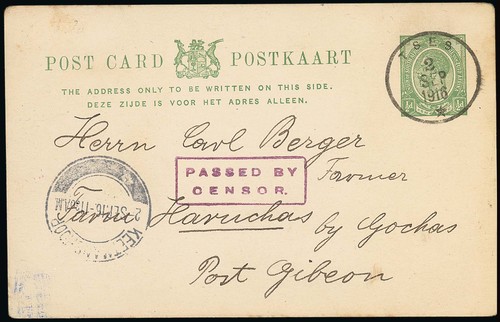 POST CARD POSTKAART
THE ADDRESS ONLY TO BE WRITTEN ON THIS SIDE.
DEZE ZIJDE IS VOOR HET ADRES ALLEEN.
TSES
2
SEP
1916
½d ½d
Herrn Carl Berger
PASSED BY
CENSOR.
Farmer
Farm Haruchas by Gochas
Post Gibeon